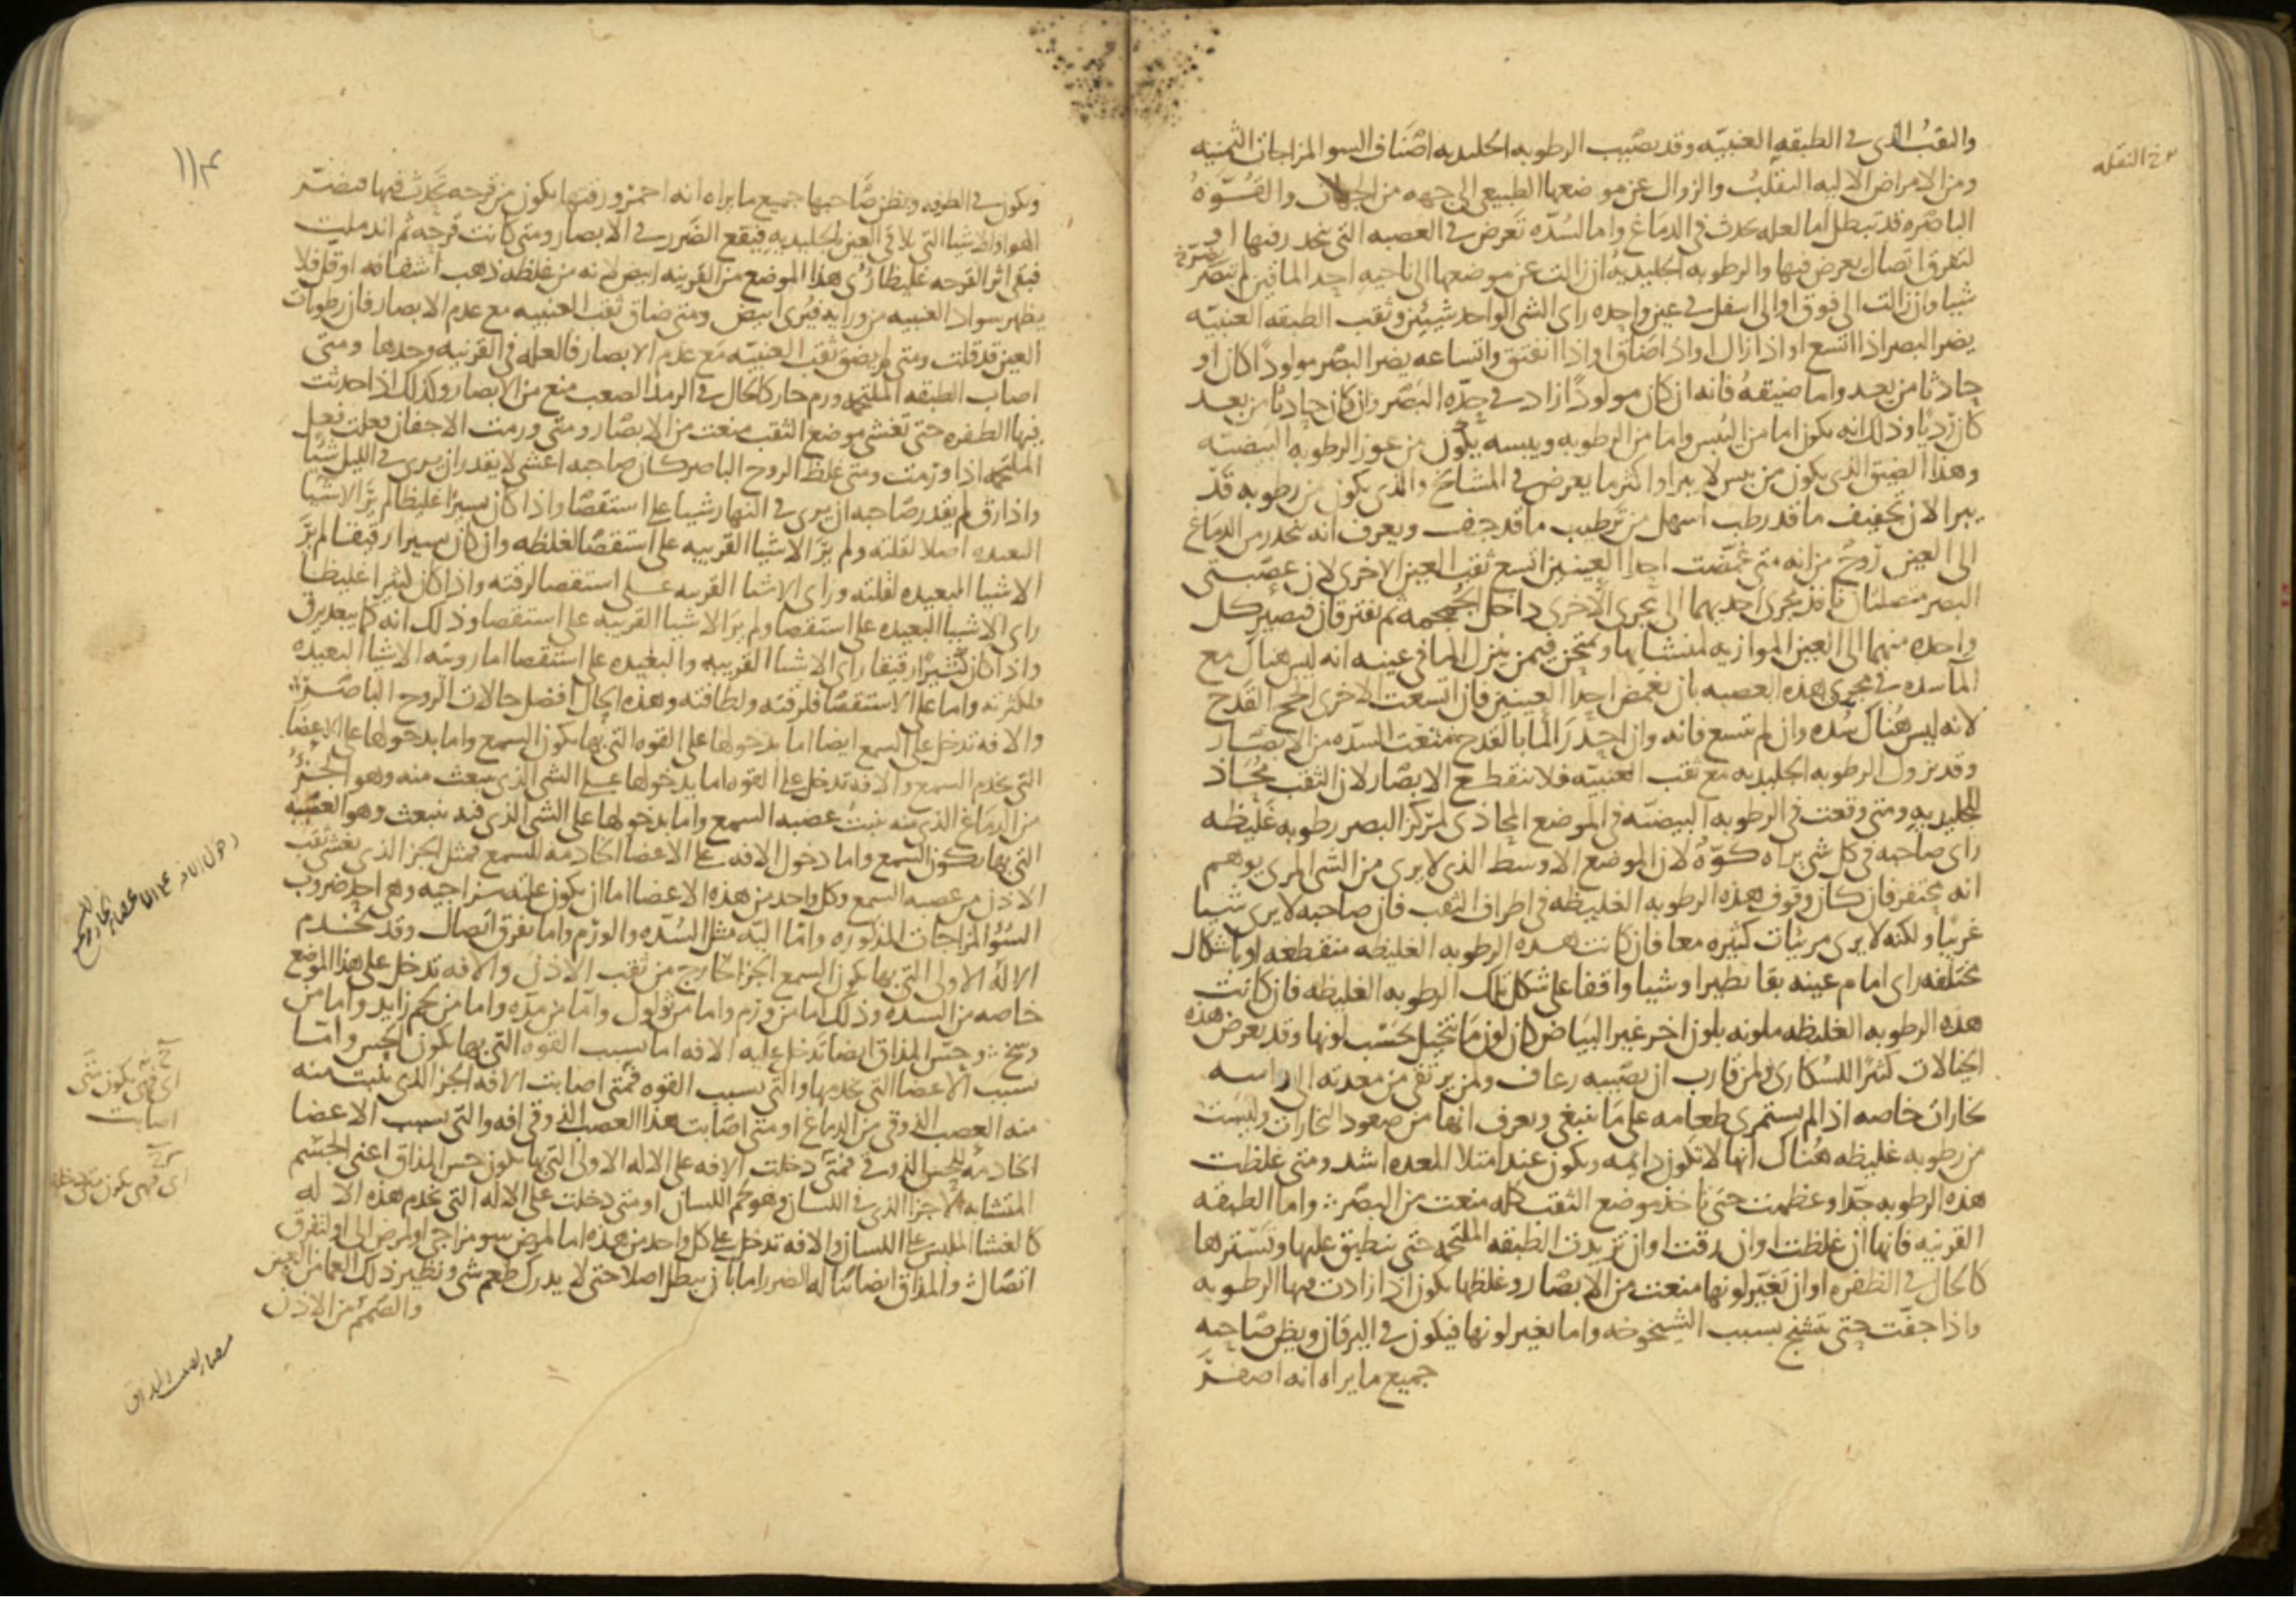 والثقب الذى فى الطبقه العنبيّه وقد يصيب الرطوبه الجليديه اصناف السو المزاجات الثمنيه
ومن الامراض الاليه التقلب والزوال عن موضعها الطبيعى الى جهه من الجهات والقُـوّهُ
الباصره قد تبطل اما لعله تحدث فى الدماغ واما لسُدّه تعرض فى العصبه التى ينحدر فيها او
لتفرق اتصال يعرض فيها والرطوبه الجليديهُ ان زالت عن موضعها الى ناحيه احد الماقين لم تبصر
شيا وان زالت الى فوق او الى اسفل فى عين واحده راى الشى الواحد شيئين وثقب الطبقه العنبيّه
يضر البصر اذا اتسع او اذا زال او اذا ضاق او اذا انفتق واتساعه يضر البصر مولودًا كان او
حادثا من بعد واما ضيقهُ فانه ان كان مولودًا زاد فى حِدّه البَصَر وان كان حادثا من بعد
كان رَدِيًا وذلك انه يكون اما من اليُبس واما من الرطوبه ويبسه يكون من عوز الرطوبه البيضيه
وهذا الضيق الذى يكون من يبس لا يبرا واكثر ما يعرض فى المشائخ والذى يكون من رطوبه قد
يبرا لان تجفيف ما قد رطب اسهل من ترطيب ما قد جف ويعرف انه ينحدر من الدماغ
الى العين روحٌ من انه متى غمّضت احدا العينين اتسع ثقب العين الاخرى لان عصبتى
البصر متصلتان نافذ مجرى احديهما الى مجرى الاخرى داخل الجمجمه ثم تفترقان فيصير كل
واحده منهما الى العين الموازيه لمنشاها ويمتحن فيمن ينزل الما فى عينه انه ليس هناك مع
الما سده فى مجرى هذه العصبه بان يغمض احدا العينين فان اتسعت الاخرى انجح القَدح
لانه ليس هُناك سُده وان لم تتسع فانه وان احدر الما بالقدح منعت السدّه من الابصار
وقد تزول الرطوبه الجليديه مع ثقب العنبيّه فلا ينقطع الابصار لان الثقب مُحاذ
للجليديه ومتى وقعت فى الرطوبه البيضيّه فى الموضع المحاذى لمركز البصر رطوبه غليظه
راى صاحبه فى كل شى يراه كوّةً لان الموضع الاوسط الذى لا يرى من الشى المرى يوهم
انه محتفر فان كان وقوف هذه الرطوبه الغليظه فى اطراف الثقب فان صاحبه لا يرى شيا
غريبًا ولكنه لا يرى مرئيات كثيره معا فان كانت هذه الرطوبه الغليظه منقطعه او باشكال
مختلفه راى امام عينه بقا تطير او شيا واقفا على شكل تلك الرطوبه الغليظه فان كانت
هذه الرطوبه الغليظه ملونه بلون اخر غير البيَاض كان لون ما يتخيل بحسَب لونها وقد يعرض هذه
الخيالات كثيرًا للسُكارى ولمن قارب ان يصيبه رعاف ولمن يرتقى من معدته الى راسه
بخارات خاصه اذا لم يستمرى طعامه على ما ينبغى ويعرف انها من صعود البخارات وليست
من رطوبه غليظه هُناك انها لا تكون دايمه ويكون عند امتلا المعده اشد ومتى غلظت
هذه الرطوبه جدا وعظمت حتى تاخذ موضع الثقب كله منعت من البصَر واما الطبقه
القرنيه فانها ان غلظت او ان رقت او ان تزيدت الطبقه الملتحمه حتى ينطبق عليها وتسترها
كالحال فى الظفره او ان تغيّر لونها منعت من الابصار وغلظها يكون اذا زادت فيها الرطوبه
واذا جفّت حتى تتشنج بسبب الشيخوخه واما تغير لونها فيكون فى اليرقان ويظن صَاحبه
جميع ما يراه انه اصفر
١١٤
ويكون فى الطرفه ويظن صَاحبها جميع ما يراه انه احمر ورقتها يكون من قرحه تحدث فيها فيضر
الهوا والاشيا التى تلاقى العين بالجليديه فيقع الضرر فى الابصار ومتى كانت قرحه ثم اندملت
فبقى اثر القرحه غليظا رُى هذا الموضع من القرنيه ابيض لانه من غلظه ذهب اشفافه او قل فلا
يظهر سواد العنبيه من ورايه فيُرى ابيض ومتى ضاق ثقب العنبيه مع عدم الابصار فان رطوبات
العين قد قلت ومتى لم يضق ثقب العنبيّه مَع عدم الابصار فالعله فى القرنيه وحدها ومتى
اصاب الطبقه الملتحمه ورم حار كالحال فى الرمد الصعب منع من الابصار وكذلك اذا حدثت
فيها الظفره حتى تغشى موضع الثقب منعت من الابصار ومتى ورمت الاجفان فعلت فعل
الملتحمه اذا ورمت ومتى غلظ الروح الباصر كان صاحبه اعشى لا يقدر ان يرى فى الليل شيًا
واذا رق لم يقدر صاحبه ان يرى فى النهار شيا على استقصا واذا كان يسيرًا غليظا لم يرَ الاشيا
البعيده اصلا لقلته ولم يرَ الاشيا القريبه على استقصا لغلظه وان كان يسيرا رقيقا لم يرَ
الاشيا البعيده لقلته وراى الاشيا القريبه على استقصا لرقته واذا كان كثيرا غليظا
راى الاشيا البعيده على استقصا ولم يرَ الاشيا القريبه على استقصا وذلك انه كلما يبعد يرق
واذا كان كثيرًا رقيقا راى الاشيا القريبه والبعيده على استقصا اما رويته الاشيا البعيده
فلكثرته واما على الاستقصا فلرقته ولطافته وهذه الحال افضل حالات الروح الباصر
والافه تدخل على السمع ايضا اما بدخولها على القوه التى بها يكون السمع واما بدخولها على الاعضا
التى تخدم السمع والافه تدخل على القوه اما بدخولها على الشى الذى ينبعث منه وهو الجزؤ
من الدماغ الذى منه ينبت عصبه السمع واما بدخولها على الشى الذى فيه ينبعث وهو العصَبه
التى بها يكون السمع واما دخول الافه على الاعضا الخادمه للسمع فمثل الجز الذى يغشى ثقب
الاذن من عصبه السمع وكل واحد من هذه الاعضا اما ان يكون علته مزاجيه وهى احد ضروب
السُو المزاجات المذكوره وامّا اليّه مثل السُدّه والورَم واما تفرق اتصال وقد يخـدم
الاله الاولى التى بها يكون السمع الجز الخارج من ثقب الاذن والافه تدخل على هذا الموضع
خاصه من السده وذلك اما من ورم واما من ثؤلول وامّا من مِدّه واما من لحم زايد واما من
وسخ وحِسّ المذاق ايضا تدخل عليه الافه اما بسبب القوه التى بها يكون الحِس وامّا
بسبب الاعضا التى تخدمها والتى بسبب القوه فمتى اصابت الافه الجز الذى ينبت منه
منه العصب الذوقى من الدماغ او متى اصَابت هذا العصب الذوقى افه والتى بسبب الاعضا
الخادمه للحس الذوقى فمتى دخلت الافه على الاله الاولى التى بها يكون حس المذاق اعنى الجسم
المتشابه الاجزا الذى فى اللسان وهو لحم اللسان او متى دخلت على الاله التى تخدم هذه الاله
كالغشا الملبس على اللسان والافه تدخل على كل واحد من هذه اما لمرض سو مزاجى او لمرض الى او لتفرق
اتصال والمذاق ايضا يناله الضرر اما بان يبطل اصلا حتى لا يدرك طعم شى ونظير ذلك العما من العين
والصمم من الاذن
اى فهى يكون متى
اصابت